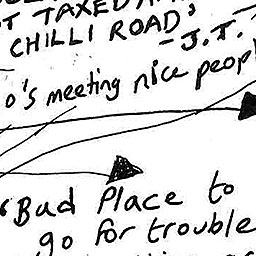 T TAXED
CHILLI ROAD'
- J.T.
o's meeting nice peop
"Bad Place to
go for trouble